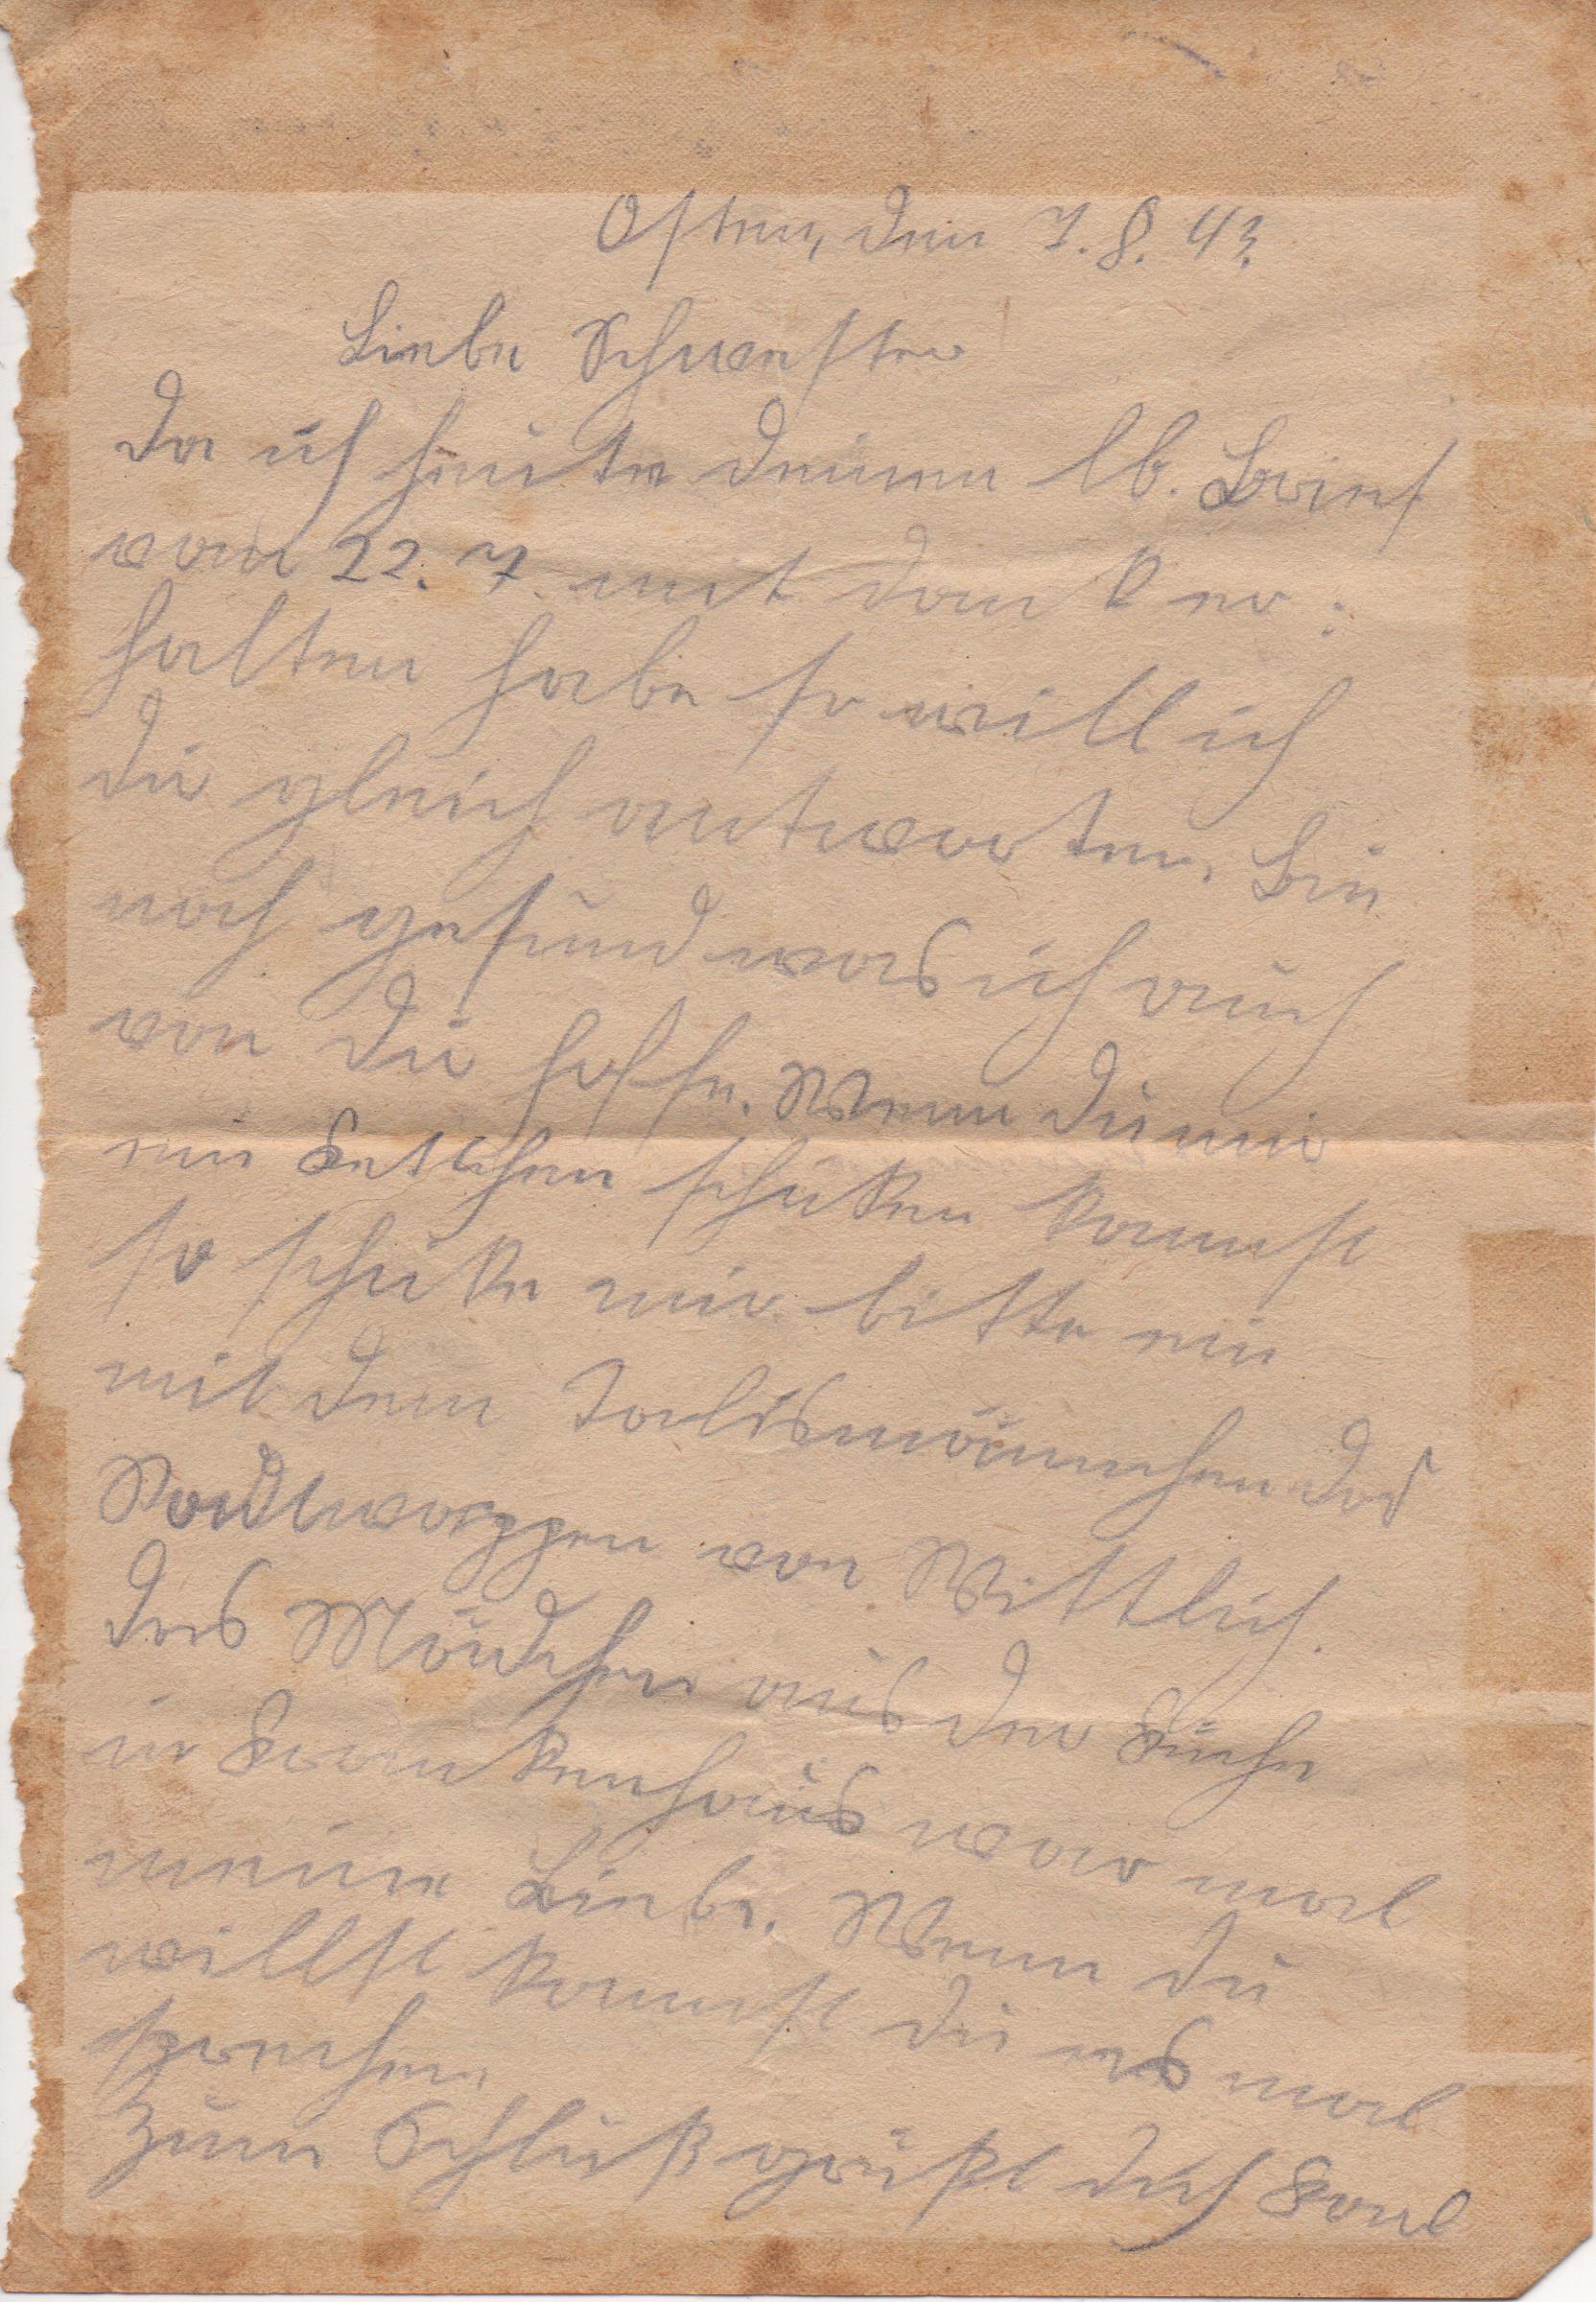 Osten, den 7.8.43.
Liebe Schwester
Da ich heute deinen lb. Brief
vom 22.7. mit dank er:
halten habe so will ich
dir gleich antworten. Bin
noch gesund was ich auch
von dir hoffe. Wenn du mir
ein Ketchen schiken kannst
so schike mir bitte ein
mit dem Talismännchen das
Stadtwappen von Wittlich.
Das Mädchen aus der Küche
in Krankenhaus war mal
meine Liebe. Wenn du
willst kannst du es mal
sprechen.
Zum Schluß grüßt dich Karl